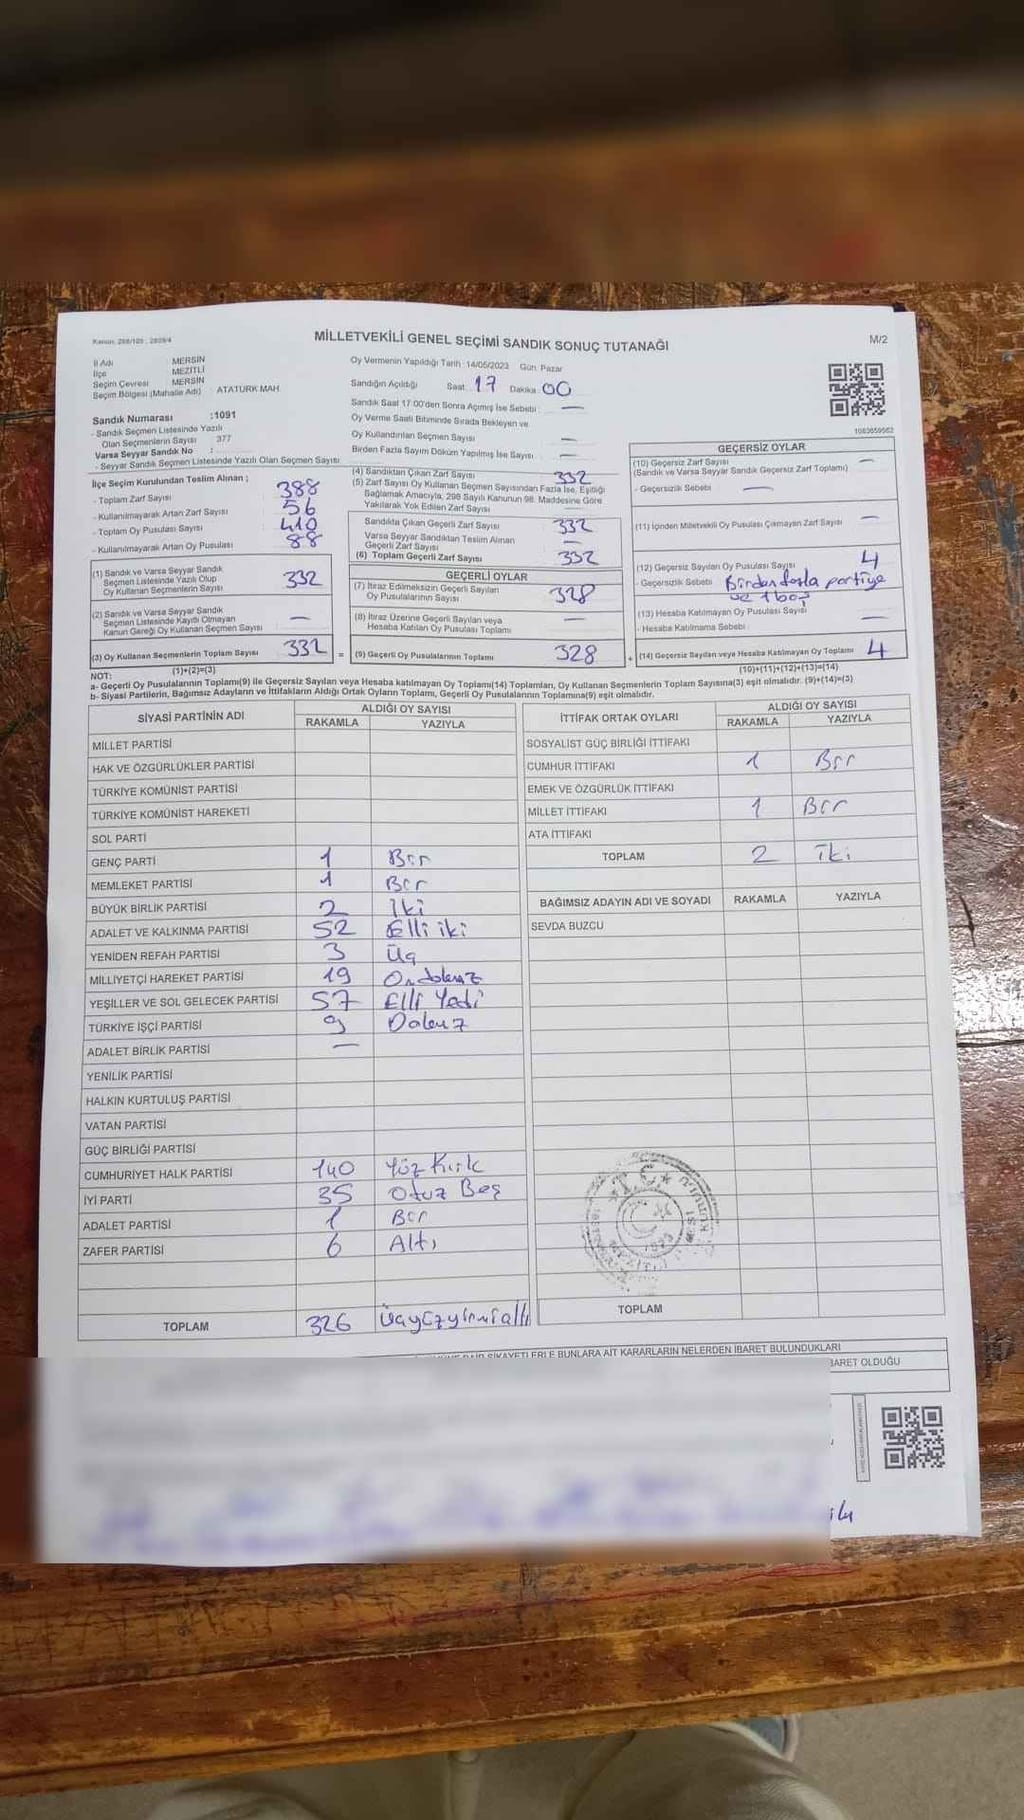 Kanun: 298/105 ; 2839/4
MİLLETVEKİLİ GENEL SEÇİMİ SANDIK SONUÇ TUTANAĞI
M/2
İl Adı MERSİN
İlçe MEZİTLİ
Seçim Çevresi MERSİN
Seçim Bölgesi (Mahalle Adı) ATATÜRK MAH
Oy Vermenin Yapıldığı Tarih :14/05/2023 Gün: Pazar
Sandığın Açıldığı Saat: 17 Dakika: 00
Sandık Saat 17:00'den Sonra Açımış İse Sebebi : —
Oy Verme Saati Bitiminde Sırada Bekleyen ve
Oy Kullandırılan Seçmen Sayısı —
Birden Fazla Sayım Döküm Yapılmış İse Sayısı : —
1083659562
Sandık Numarası :1091
- Sandık Seçmen Listesinde Yazılı
Olan Seçmenlerin Sayısı 377
Varsa Seyyar Sandık No :
- Seyyar Sandık Seçmen Listesinde Yazılı Olan Seçmen Sayısı:
İlçe Seçim Kurulundan Teslim Alınan ;
- Toplam Zarf Sayısı 388
- Kullanılmayarak Artan Zarf Sayısı 56
- Toplam Oy Pusulası Sayısı 410
- Kullanılmayarak Artan Oy Pusulası 88
(1) Sandık ve Varsa Seyyar Sandık
Seçmen Listesinde Yazılı Olup
Oy Kullanan Seçmenlerin Sayısı 332
(2) Sandık ve Varsa Seyyar Sandık
Seçmen Listesinde Kayıtlı Olmayan
Kanun Gereği Oy Kullanan Seçmen Sayısı —
(3) Oy Kullanan Seçmenlerin Toplam Sayısı 332 =
(1)+(2)=(3)
(4) Sandıktan Çıkan Zarf Sayısı 332
(5) Zarf Sayısı Oy Kullanan Seçmen Sayısından Fazla İse, Eşitliği
Sağlamak Amacıyla, 298 Sayılı Kanunun 98. Maddesine Göre
Yakılarak Yok Edilen Zarf Sayısı —
Sandıkta Çıkan Geçerli Zarf Sayısı 332
Varsa Seyyar Sandıktan Teslim Alınan
Geçerli Zarf Sayısı —
(6) Toplam Geçerli Zarf Sayısı 332
GEÇERLİ OYLAR
(7) İtiraz Edilmeksizin Geçerli Sayılan
Oy Pusulalarının Sayısı 328
(8) İtiraz Üzerine Geçerli Sayılan veya
Hesaba Katılan Oy Pusulası Toplamı —
(9) Geçerli Oy Pusulalarının Toplamı 328 +
GEÇERSİZ OYLAR
(10) Geçersiz Zarf Sayısı —
(Sandık ve Varsa Seyyar Sandık Geçersiz Zarf Toplamı)
- Geçersizlik Sebebi : —
(11) İçinden Milletvekili Oy Pusulası Çıkmayan Zarf Sayısı —
(12) Geçersiz Sayılan Oy Pusulası Sayısı 4
- Geçersizlik Sebebi : Birden fazla partiye
ve 1 boş
(13) Hesaba Katılmayan Oy Pusulası Sayısı —
- Hesaba Katılmama Sebebi :
(14) Geçersiz Sayılan veya Hesaba Katılmayan Oy Toplamı 4
(10)+(11)+(12)+(13)=(14)
NOT:
a- Geçerli Oy Pusulalarının Toplamı(9) ile Geçersiz Sayılan veya Hesaba katılmayan Oy Toplamı(14) Toplamları, Oy Kullanan Seçmenlerin Toplam Sayısına(3) eşit olmalıdır. (9)+(14)=(3)
b- Siyasi Partilerin, Bağımsız Adayların ve İttifakların Aldığı Ortak Oyların Toplamı, Geçerli Oy Pusulalarının Toplamına(9) eşit olmalıdır.
SİYASİ PARTİNİN ADI ALDIĞI OY SAYISI
RAKAMLA YAZIYLA
MİLLET PARTİSİ
HAK VE ÖZGÜRLÜKLER PARTİSİ
TÜRKİYE KOMÜNİST PARTİSİ
TÜRKİYE KOMÜNİST HAREKETİ
SOL PARTİ
GENÇ PARTİ 1 Bir
MEMLEKET PARTİSİ 1 Bir
BÜYÜK BİRLİK PARTİSİ 2 İki
ADALET VE KALKINMA PARTİSİ 52 Elli iki
YENİDEN REFAH PARTİSİ 3 Üç
MİLLİYETÇİ HAREKET PARTİSİ 19 Ondokuz
YEŞİLLER VE SOL GELECEK PARTİSİ 57 Elli Yedi
TÜRKİYE İŞÇİ PARTİSİ 9 Dokuz
ADALET BİRLİK PARTİSİ —
YENİLİK PARTİSİ
HALKIN KURTULUŞ PARTİSİ
VATAN PARTİSİ
GÜÇ BİRLİĞİ PARTİSİ
CUMHURİYET HALK PARTİSİ 140 Yüz Kırk
İYİ PARTİ 35 Otuz Beş
ADALET PARTİSİ 1 Bir
ZAFER PARTİSİ 6 Altı
TOPLAM 326 Üçyüzyirmialtı
İTTİFAK ORTAK OYLARI ALDIĞI OY SAYISI
RAKAMLA YAZIYLA
SOSYALİST GÜÇ BİRLİĞİ İTTİFAKI
CUMHUR İTTİFAKI 1 Bir
EMEK VE ÖZGÜRLÜK İTTİFAKI
MİLLET İTTİFAKI 1 Bir
ATA İTTİFAKI
TOPLAM 2 İki
BAĞIMSIZ ADAYIN ADI VE SOYADI RAKAMLA YAZIYLA
SEVDA BUZCU
T.C.
TOPLAM
ŞİKAYETLERLE BUNLARA AİT KARARLARIN NELERDEN İBARET BULUNDUKLARI
İBARET OLDUĞU